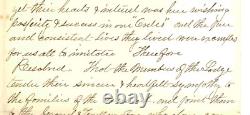 yet their hearts & interest was here wishing
prosperity & success in our "Order" and the pure
and consistent lives they lived were examples
for us all to imitate Therefore
Resolved. That the Members of this Lodge
tender their sincere & heartfelt sympathy to
the families of the and point them